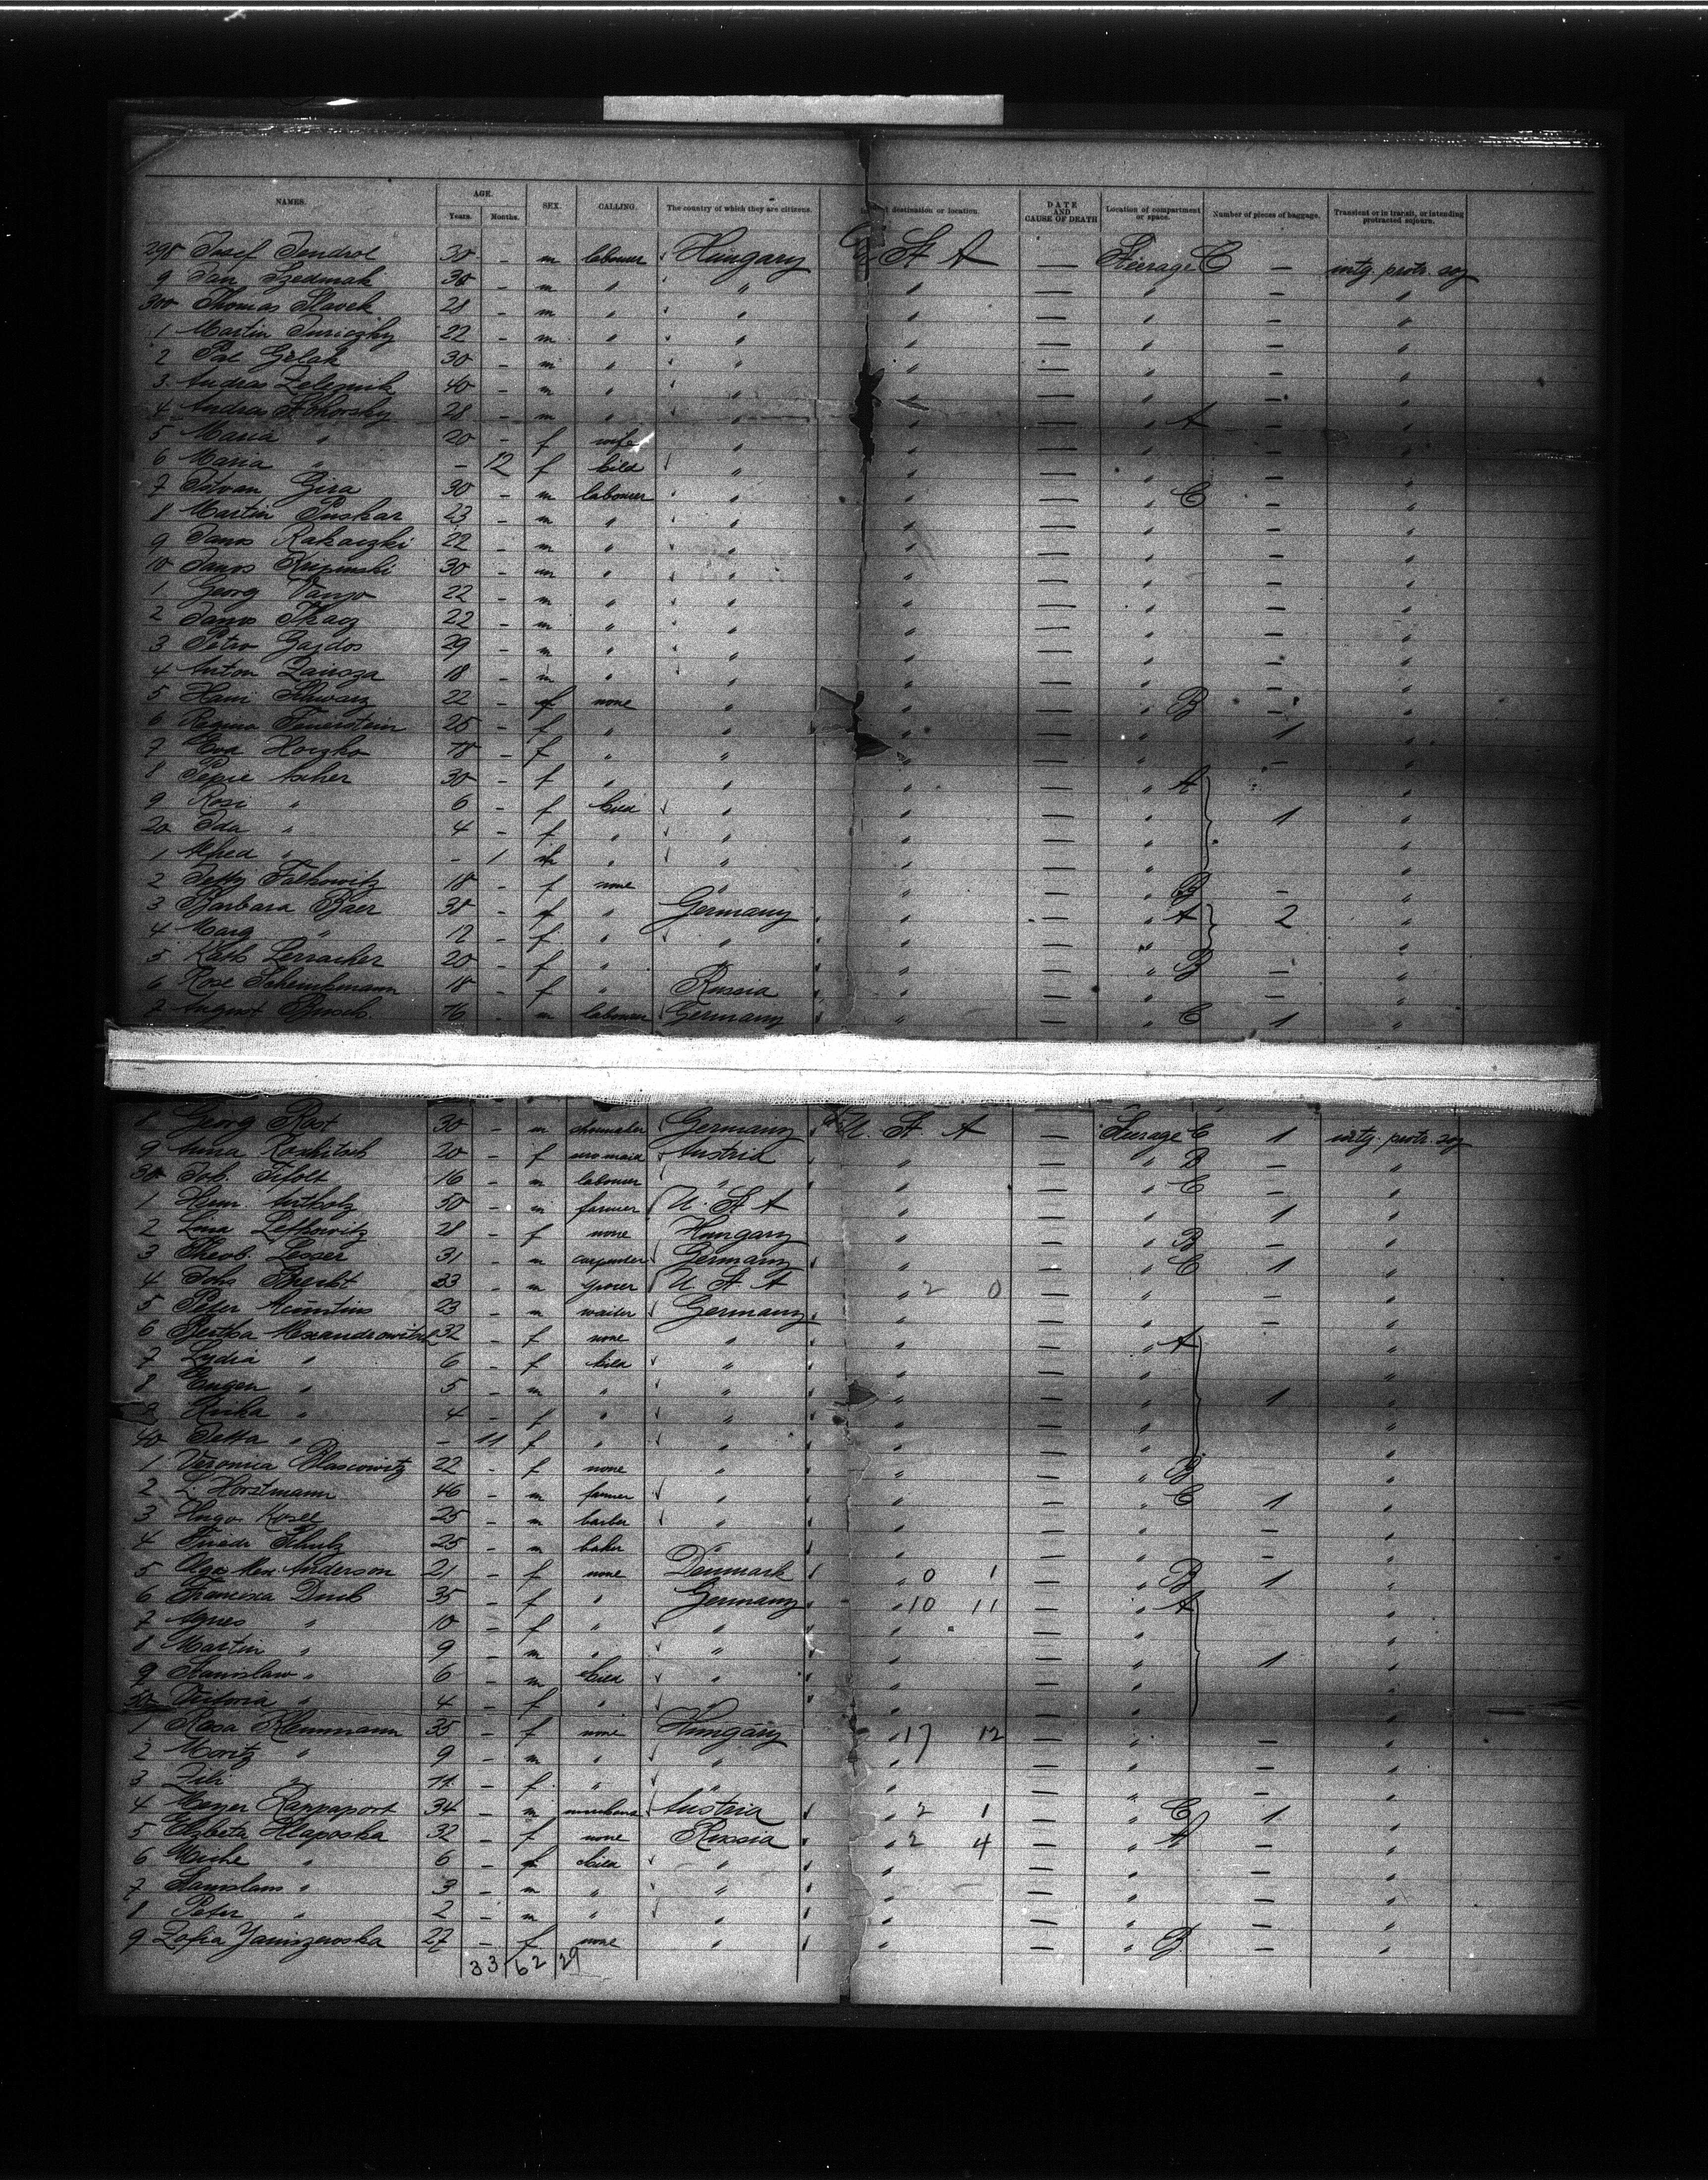 NAMES. AGE. Years. Months. SEX. CALLING. The country of which they are citizens. destination or location. DATE AND CAUSE OF DEATH Location of compartment or space. Number of pieces of baggage. Transient or in transit, or intending protracted sojourn.
298 Josef Jendrol 30 - m labourer Hungary U. St. A — Steerage C — intg. protr. soj
9 Jan Szedmak 30 - m " " " — " — "
300 Thomas Slavek 28 - m " " " — " — "
1 Martin 22 - m " " " — " — "
2 Pal Gelak 30 - m " " " — " — "
3 Andras Zeleznik 40 - m " " " — " — "
4 Andras 28 - m " " " — " A — "
5 Maria " 20 - f wife " " — " — "
6 Maria " - 12 f child " " — " — "
7 Istvan Gira 30 - m labourer " " — " C — "
8 Martin Puskar 23 - m " " " — " — "
9 Janos Rakaczki 22 - m " " " — " — "
10 Janos Krupinski 30 - m " " " — " — "
1 Georg Vanjo 22 - m " " " — " — "
2 Janos Tkacz 22 - m " " " — " — "
3 Petro Gajdos 29 - m " " " — " — "
4 Anton 18 - m " " " — " — "
5 Hani Schwarz 22 - f none " " — " B — "
6 Regina Feuerstein 25 - f " " " — " 1 "
7 Eva Horzko 18 - f " " " — " — "
8 Pepie Ascher 30 - f " " " — " A "
9 Rosi " 6 - f child " " — " 1 "
20 Ida " 4 - f " " " — " "
1 Alfred " - 1 m " " " — " "
2 Jetty Falkowitz 18 - f none " " — " B — "
3 Barbara Baer 30 - f " Germany " — " A 2 "
4 Marg " 12 - f " " " — " "
5 Kath Lerracher 20 - f " " " — " B — "
6 Rose 18 - f " Russia " — " — "
7 August Busch 16 - m labourer Germany " — " C 1 "
8 Georg Rost 30 - m Germany U. St. A — Steerage C 1 intg. protr. soj
9 Anna 20 - f Austria " — " B — "
30 Joh. 16 - m labourer " " — " C — "
1 Herm 50 - m farmer U. St. A " — " 1 "
2 Lina Lefkowitz 28 - f none Hungary " — " B — "
3 Theob. Lesser 31 - m carpenter Germany " — " C 1 "
4 Johs Brecht 33 - m grocer U. St. A " 2 0 — " — "
5 Peter 23 - m waiter Germany " — " — "
6 Bertha Alexandrowitsch 32 - f none " " — " A "
7 Lydia " 6 - f child " " — " "
8 Eugen " 5 - m " " " — " 1 "
9 " 4 - f " " " — " "
40 Jetta " - 11 f " " " — " "
1 Veronica Blascowitz 22 - f none " " — " B "
2 L. Horstmann 46 - m farmer " " — " C 1 "
3 Hugo 25 - m barber " " — " — "
4 Friedr Schulz 25 - m baker " " — " — "
5 Olga Anderson 21 - f none Denmark " 0 1 — " B 1 "
6 Francisca 35 - f " Germany " 10 11 — " A "
7 Agnes " 10 - f " " " — " "
8 Martin " 9 - m " " " — " 1 "
9 Stanislaw " 6 - m child " " — " "
50 Victoria " 4 - f " " " — " "
1 Rosa 35 - f none Hungary " 17 12 — " — "
2 Moritz " 9 - m " " " — " — "
3 Zili " 11 - f " " " — " — "
4 Mayer Rappaport 34 - m Austria " 2 1 — " C 1 "
5 Elzbeta 32 - f none Russia " 2 4 — " A — "
6 " 6 - f child " " — " — "
7 Stanislaus " 3 - m " " " — " — "
8 Peter " 2 - m " " " — " — "
9 Zofia Janiszewska 27 - f none " " — " B — "
33 62 29